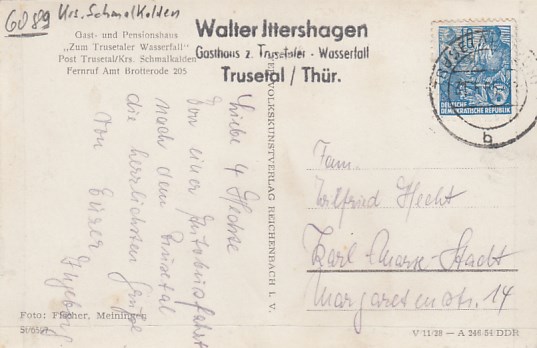 6089 Krs. Schmalkalden
Gast- und Pensionshaus
„Zum Trusetaler Wasserfall"
Post Trusetal/Krs. Schmalkalden
Fernruf Amt Brotterode 205
Walter Jttershagen
Gasthaus z. Trusetaler - Wasserfall
Trusetal / Thür.
DEUTSCHE
DEMOKRATISCHE REPUBLIK
b
Liebe 4 Hechte
Von einer Autobusfahrt
nach dem Trusetal
die herzlichsten Grüße
Von Eurer
Ingeborg
VOLKSKUNSTVERLAG REICHENBACH I. V.
Fam.
Wilfried Hecht
Karl-Marx-Stadt
Margaretenstr. 14
Foto: Fischer, Meiningen
V 11/28 — A 246 54 DDR